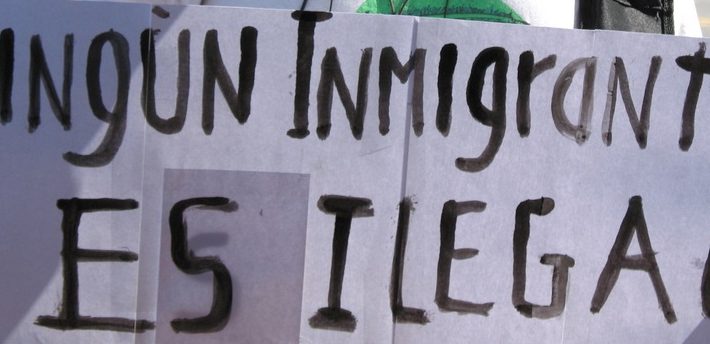 INgÚN INMIgrANT
ES ILEGA